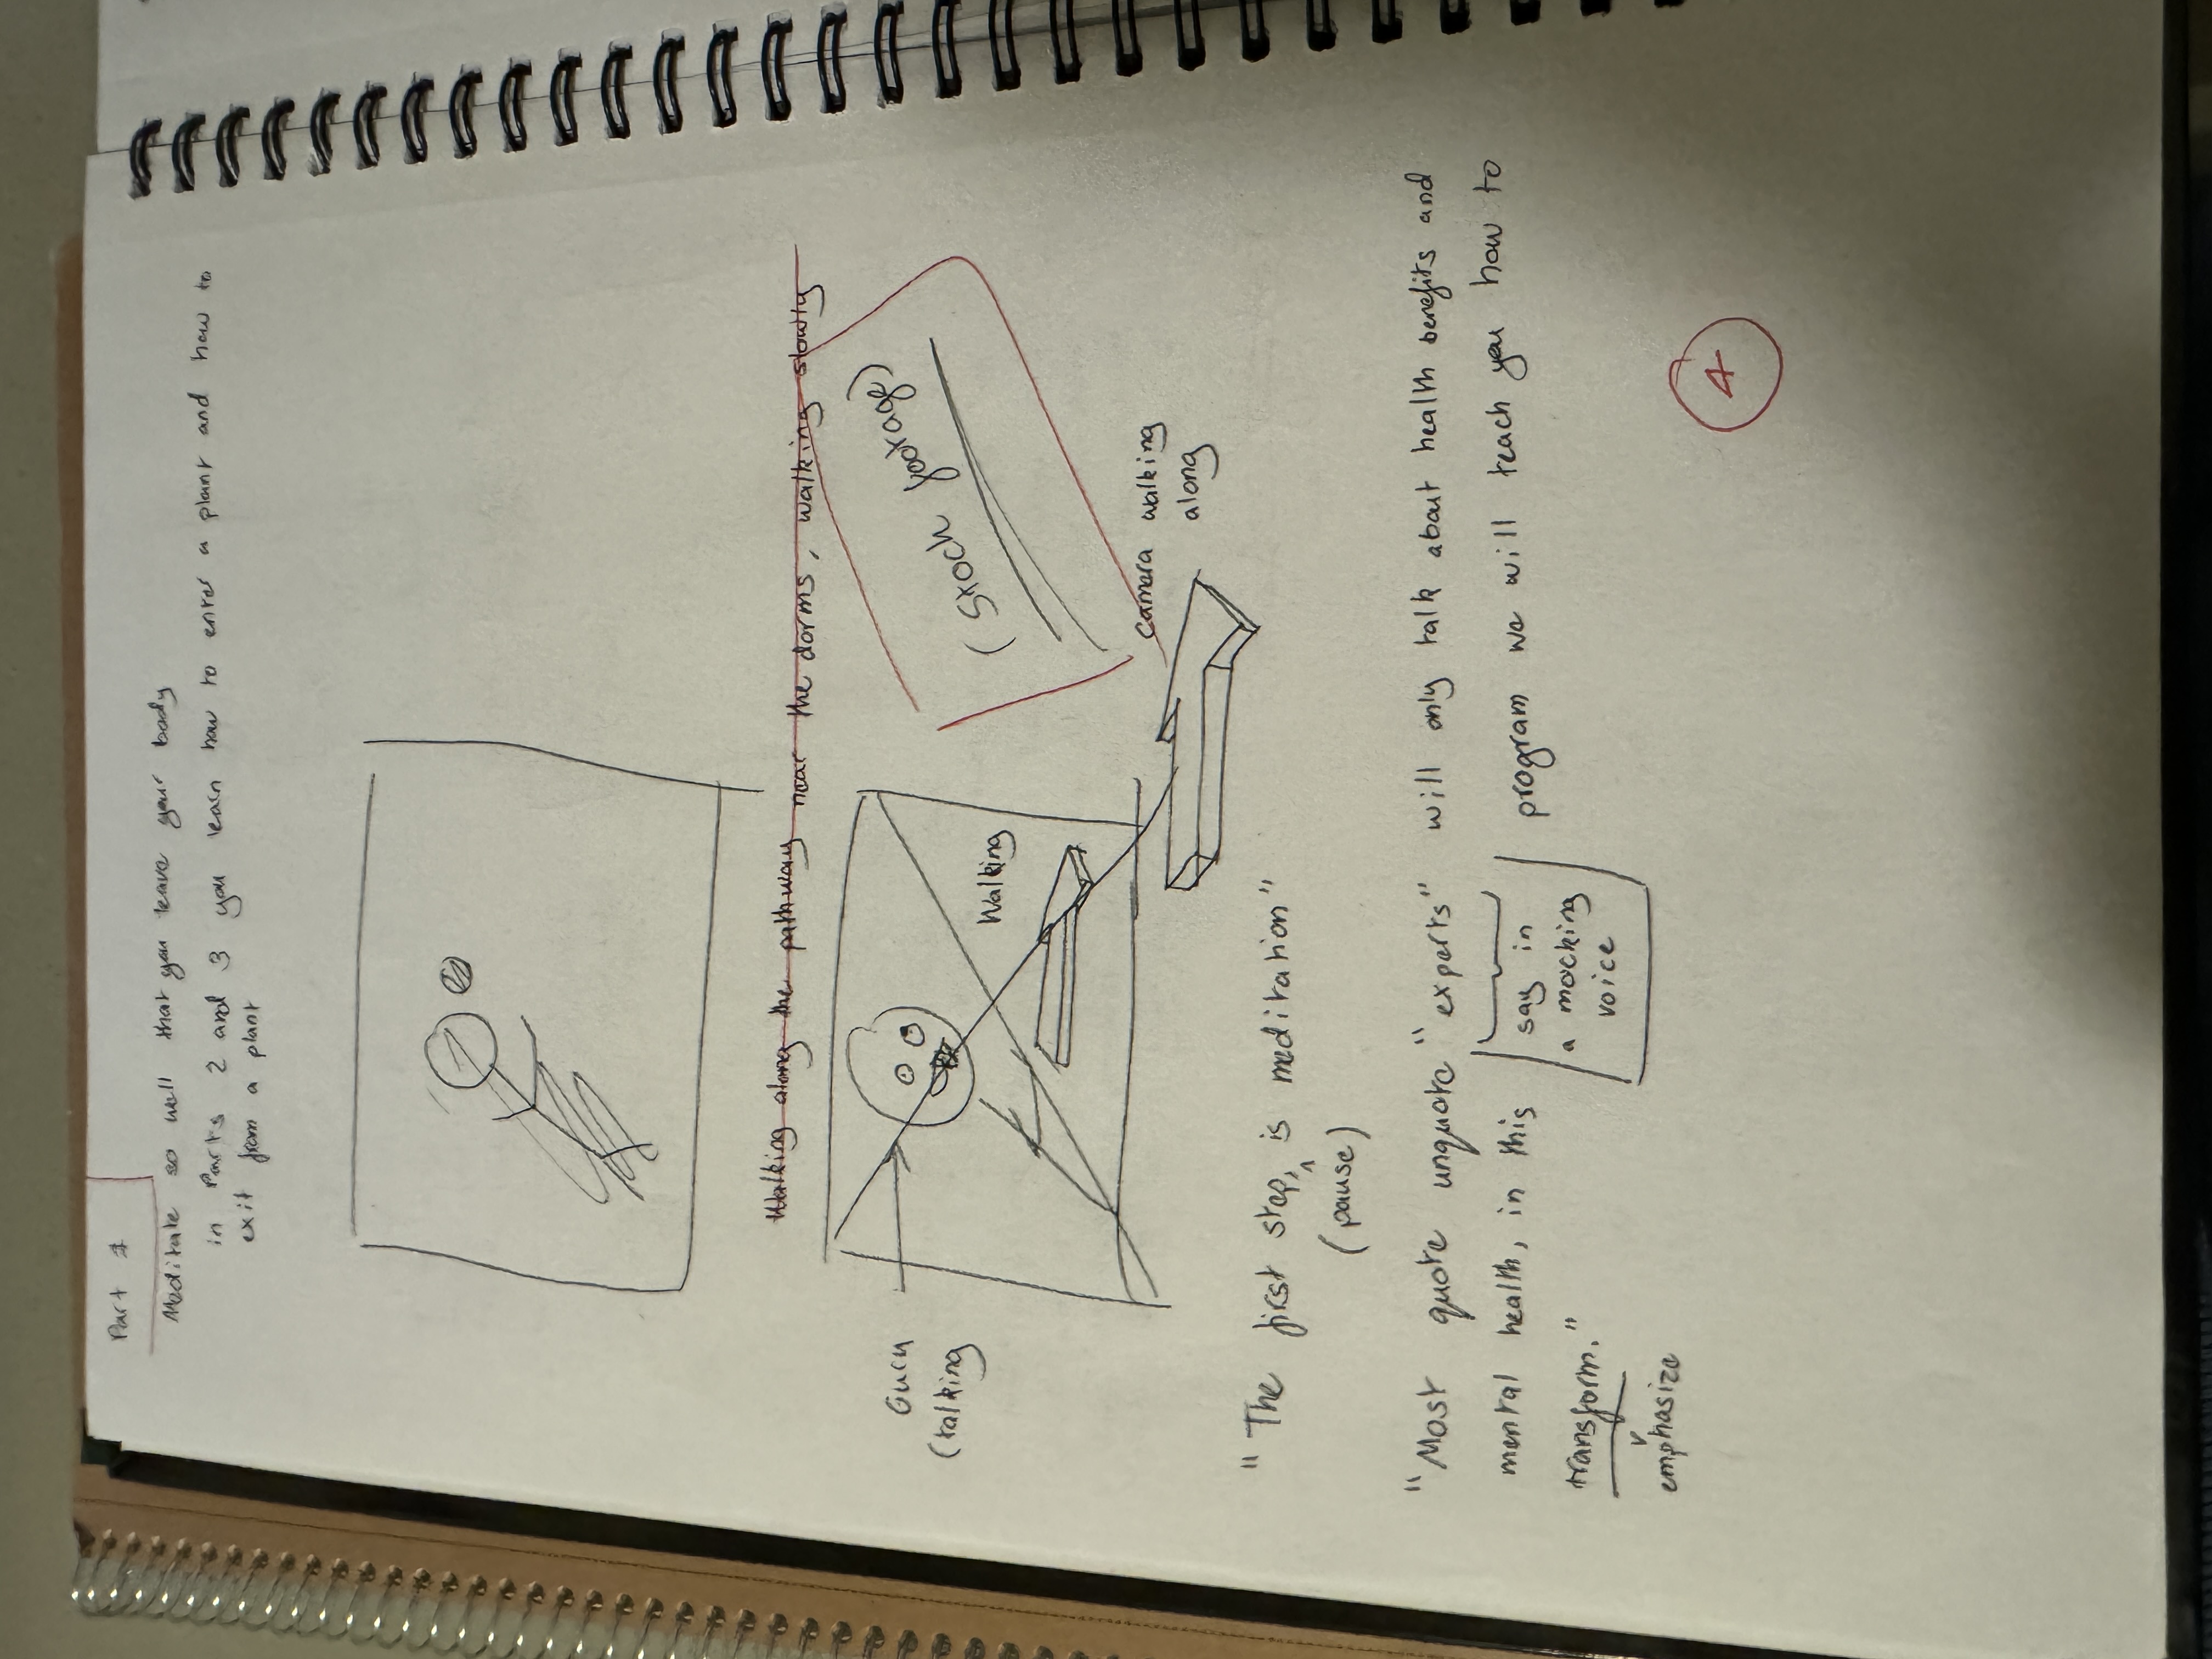 Part 1
Meditate so well that you leave your body
in Parts 2 and 3 you learn how to enter a plant and how to
exit from a plant
Walking along the pathway near the dorms, walking slowly
Guru
(talking
Walking
(Stock footage)
Camera walking
along
"The first step, is meditation"
(pause)
"Most quote unquote "experts" will only talk about health benefits and
mental health, in this program we will teach you how to
transform."
say in
a mocking
voice
emphasize
4